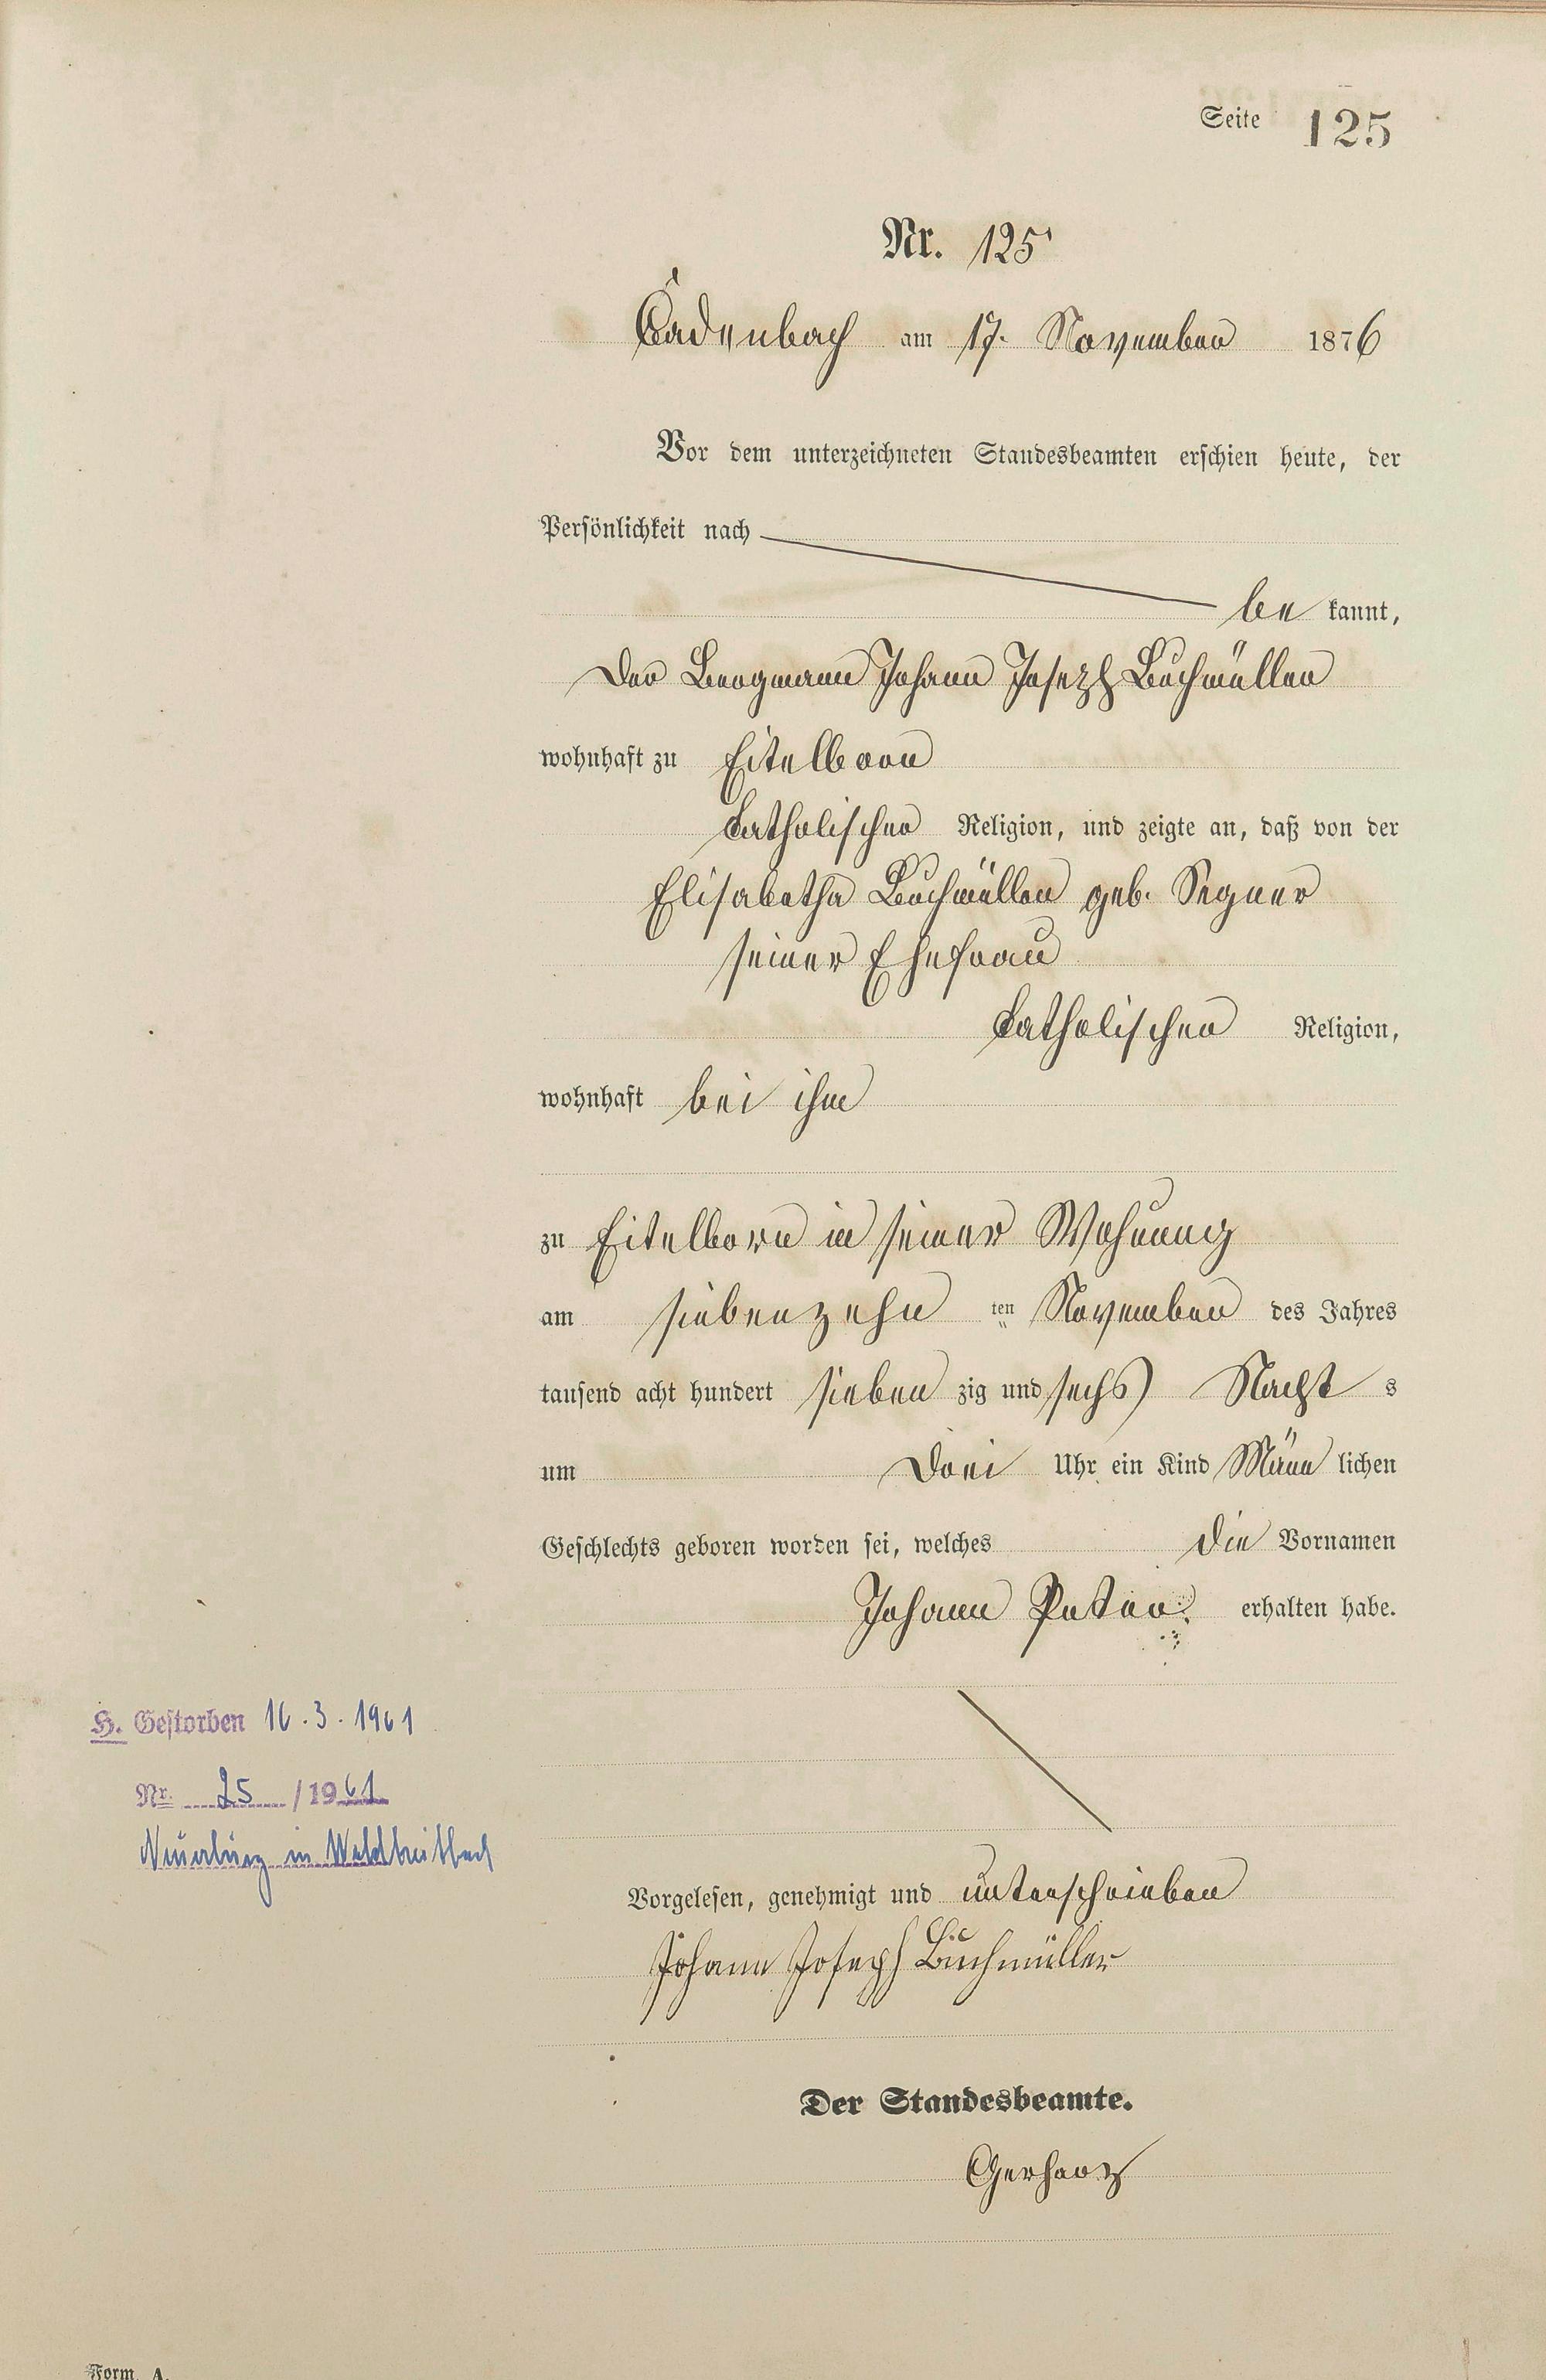 Seite 125
Nr. 125
Cadenbach am 17. November 1876
Vor dem unterzeichneten Standesbeamten erschien heute, der
Persönlichkeit nach
be kannt,
Der Bergmann Johann Joseph Buchmüller
wohnhaft zu Eitelborn
katholischer Religion, und zeigte an, daß von der
Elisabetha Buchmüller geb. Segner
seiner Ehefrau
katholischer Religion,
wohnhaft bei ihm
zu Eitelborn in seiner Wohnung
am siebenzehn ten November des Jahres
tausend acht hundert sieben zig und sechs Nacht s
um Drei Uhr ein Kind Männ lichen
Geschlechts geboren worden sei, welches die Vornamen
Johann Peter erhalten habe.
H. Gestorben 16.3.1961
Nr. 25 /1961
Neuerburg in Waldbreitbach
Vorgelesen, genehmigt und unterschrieben
Johann Joseph Buchmüller
Der Standesbeamte.
Gerharz
Form. A.